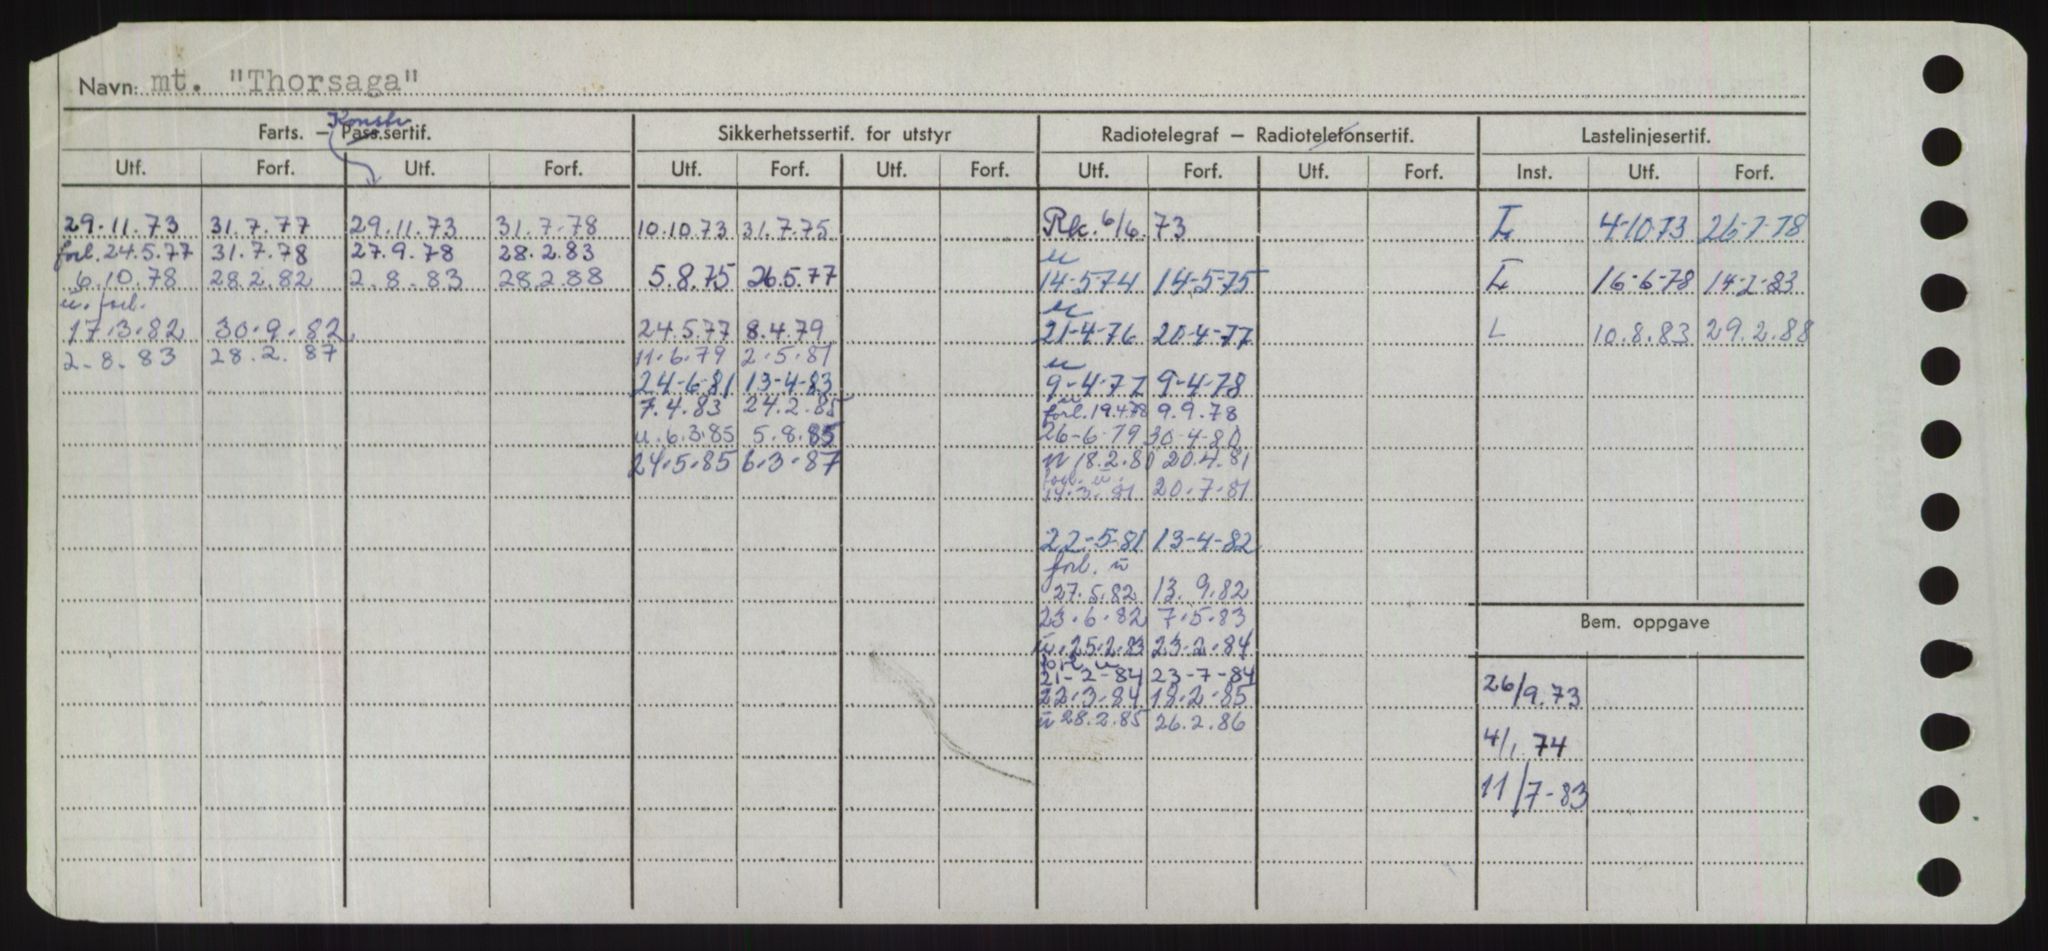 Navn: mt. "Thorsaga"
Konstr
Farts. – Pass.sertif. Sikkerhetssertif. for utstyr Radiotelegraf – Radiotelefonsertif. Lastelinjesertif.
Utf. Forf. Utf. Forf. Utf. Forf. Utf. Forf. Utf. Forf. Utf. Forf. Inst. Utf. Forf.
29.11.73 31.7.77 29.11.73 31.7.78 10.10.73 31.7.75 Rk. 6/6.73 L 4-10.73 26-7-78
forl. 24.5.77 31.7.78 27.9.78 28.2.83 u
6.10.78 28.2.82 2.8.83 28.2.88 5.8.75 26.5.77 14-5-74 14-5-75 L 16-6-78 14-2-83
u. forl. u
17.3.82 30.9.82 24.5.77 8.4.79 21-4-76 20-4-77 L 10.8.83 29.2.88
2.8.83 28.2.87 11.6.79 2.5.81 u
24-6-81 13-4-83 9-4-77 9-4-78
7.4.83 24.2.85 forl. u 19.4.78 9.9.78
u. 6.3.85 5.8.85 26-6-79 30-4-80
24.5.85 6.3.87 u 18.2.80 20.4.81
forl. u
14.3.81 20.7.81
22-5-81 13-4-82
forl. u
27.5.82 13.9.82
23.6.82 7.5.83 Bem. oppgave
u. 25.2.83 23.2.84
forl. u
21-2-84 23-7-84 26/9.73
22.3.84 18.2.85
u 28.2.85 26.2.86
4/1.74
11/7-83